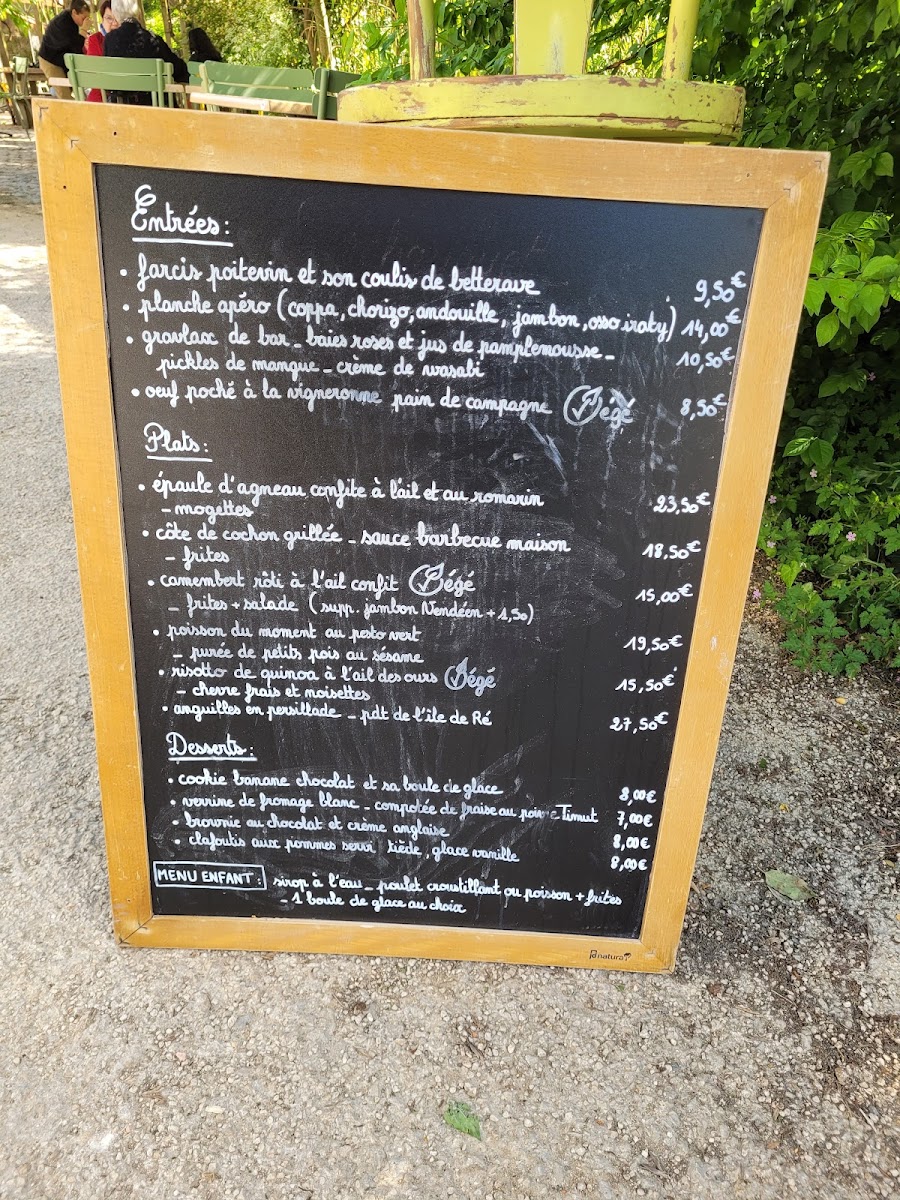 Entrées :
• farcis poitevin et son coulis de betterave 9,50€
• planche apéro (coppa, chorizo, andouille, jambon, osso iraty) 14,00€
• gravlax de bar - baies roses et jus de pamplemousse - 10,50€
pickles de mangue - crème de wasabi
• oeuf poché à la vigneronne pain de campagne Végé 8,50€
Plats :
• épaule d'agneau confite à l'ail et au romarin 23,50€
- mogettes
• côte de cochon grillée - sauce barbecue maison 18,50€
- frites
• camembert rôti à l'ail confit Végé 15,00€
- frites + salade (supp. jambon Vendéen + 1,50)
• poisson du moment au pesto vert 19,50€
- purée de petits pois au sésame
• risotto de quinoa à l'ail des ours Végé 15,50€
- chevre frais et noisettes
• anguilles en persillade - pdt de l'île de Ré 27,50€
Desserts :
• cookie banane chocolat et sa boule de glace 8,00€
• verrine de fromage blanc - compotée de fraise au poivre Timut 7,00€
• brownie au chocolat et crème anglaise 8,00€
• clafoutis aux pommes servi tiède, glace vanille 8,00€
MENU ENFANT : sirop à l'eau - poulet croustillant ou poisson + frites
- 1 boule de glace au choix